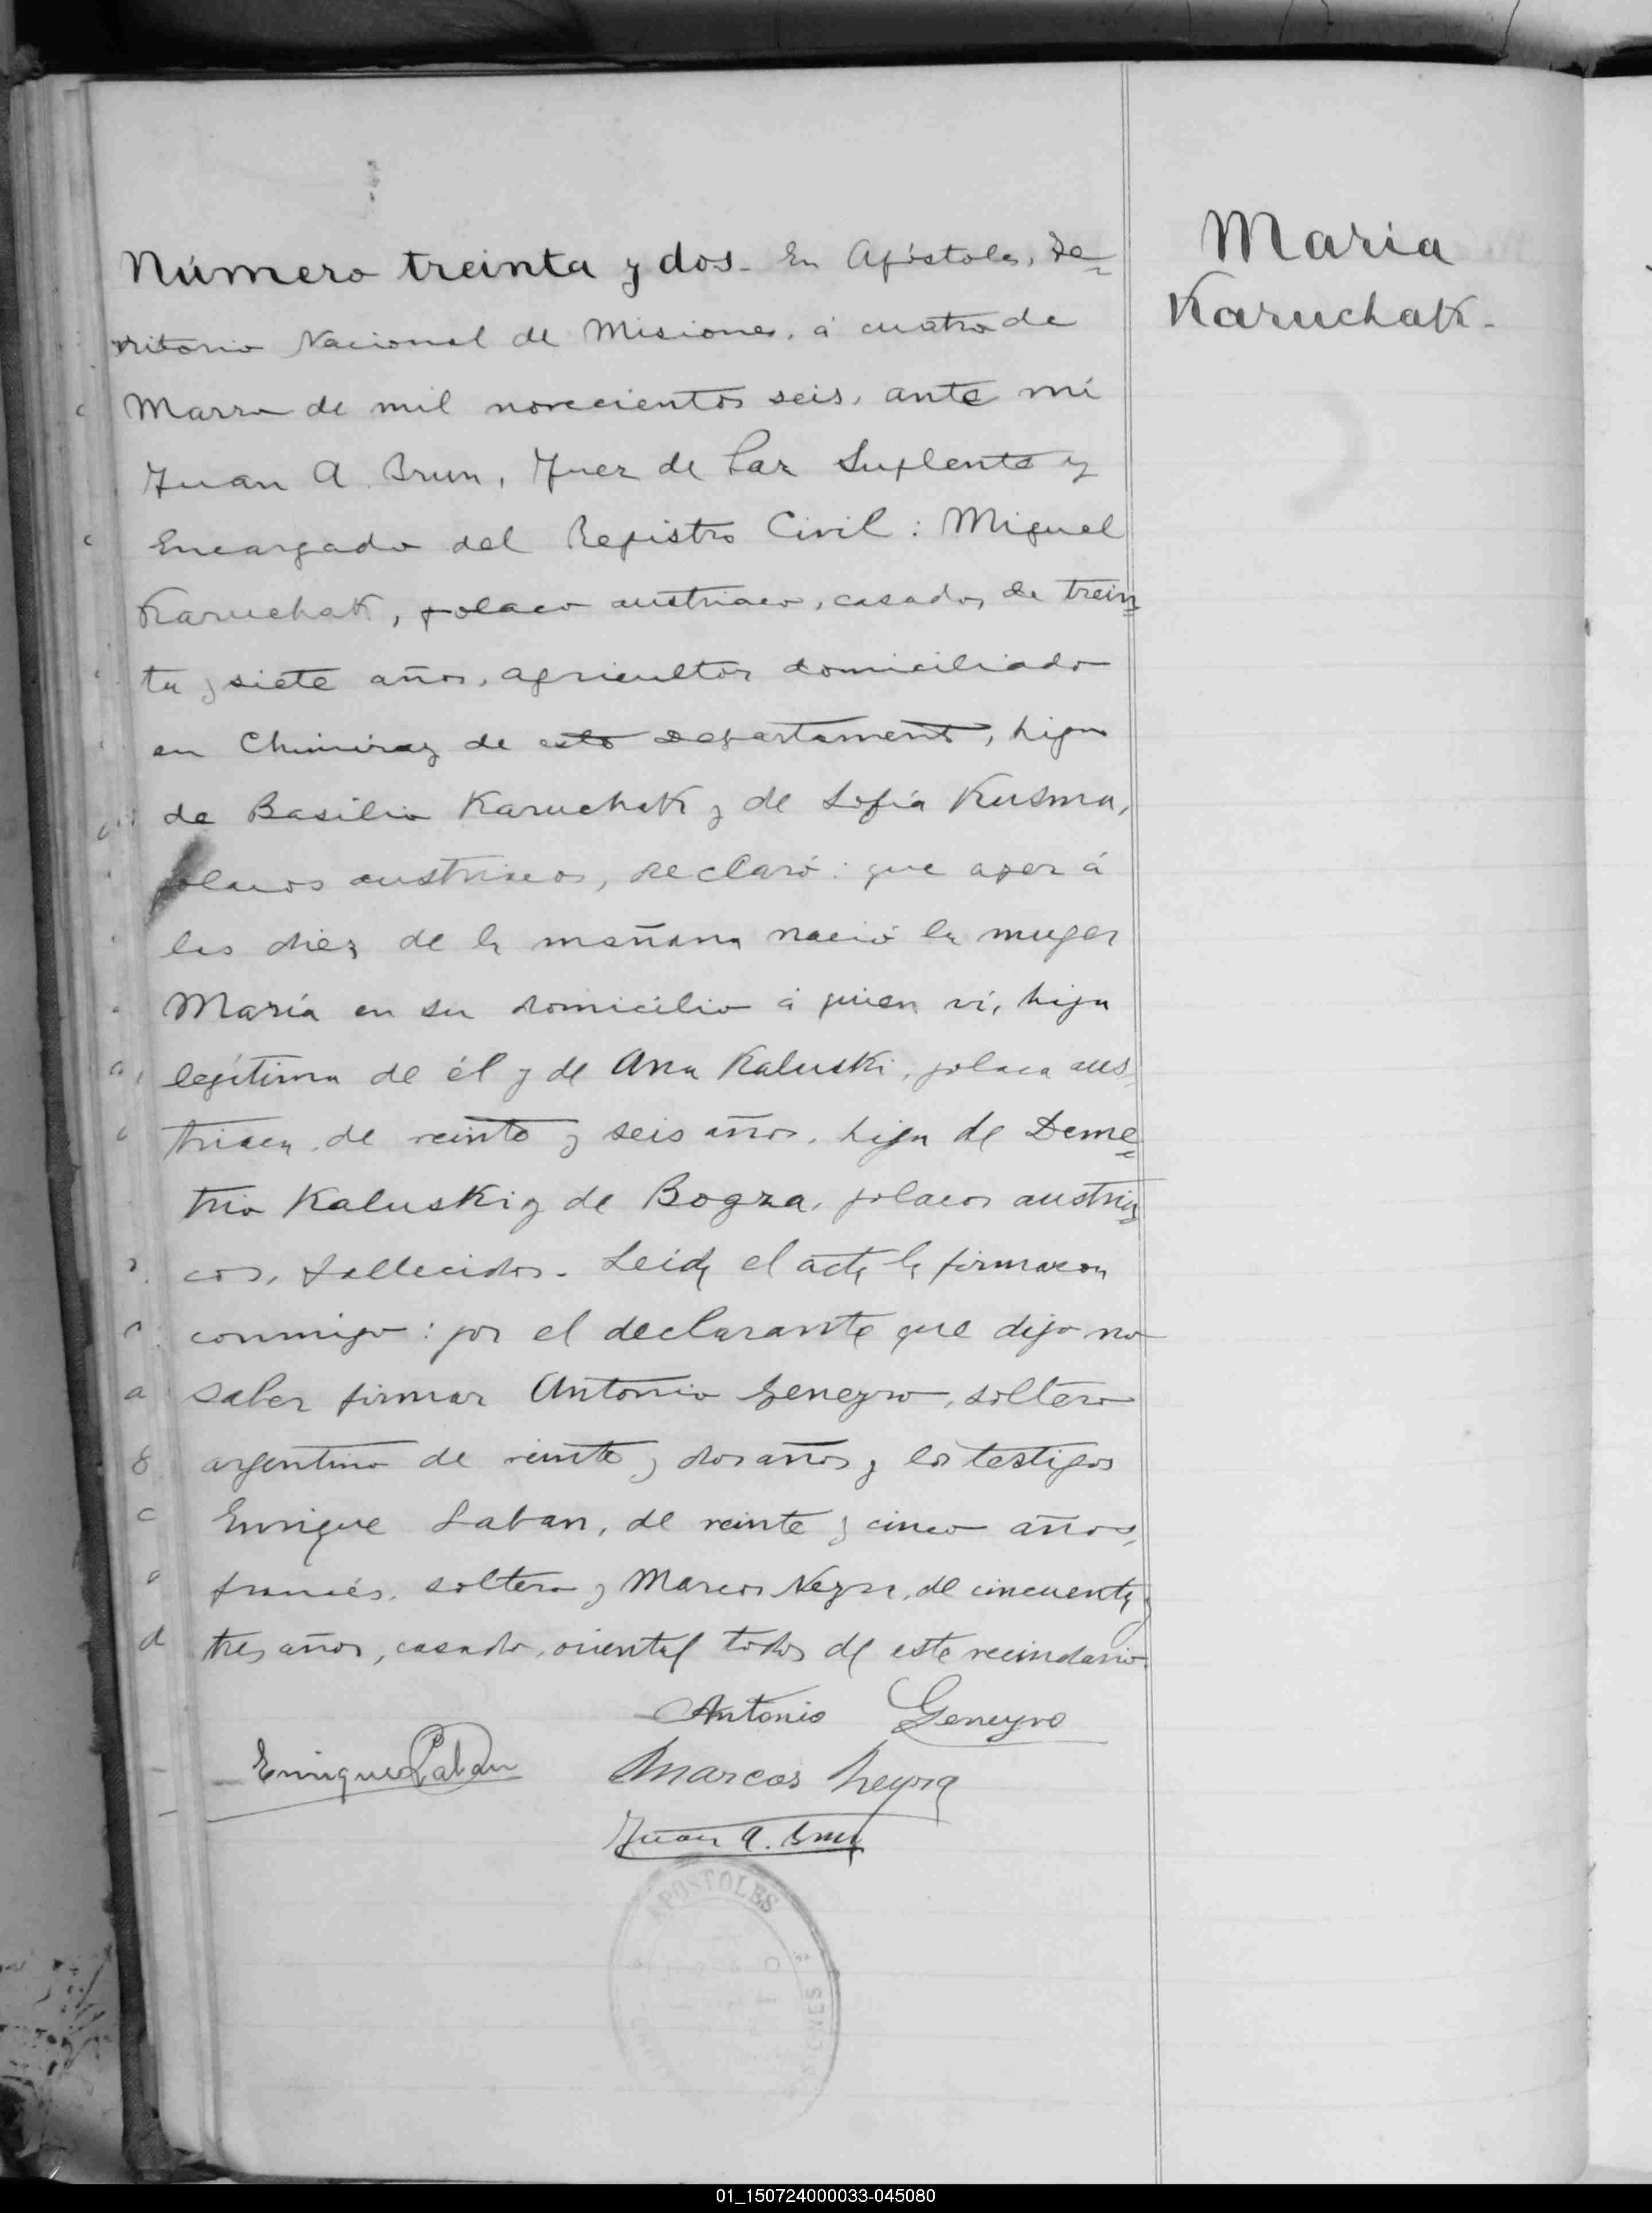 Maria
Karuchak-
Número treinta y dos- En Apóstoles, Te=
rritorio Nacional de Misiones, á cuatro de
Marzo de mil novecientos seis, ante mí
Juan A. Brun, Juez de Paz Suplente y
Encargado del Registro Civil: Miguel
Karuchak, polaco austriaco, casado, de trein=
ta y siete años, agricultor domiciliado
en Chimiray de este Departamento, hijo
de Basilio Karuchak y de Sofía Kusma,
polacos austriacos, declaró: que ayer á
las diez de la mañana nació la muger
María en su domicilio á quien ví, hija
legítima de él y de Ana Kaluski, polaca aus
triaca, de veinte y seis años, hija de Deme=
trio Kaluski y de Bogza, polacos austria
cos, fallecidos- Leida el acta la firmaron
conmigo: por el declarante que dijo no
saber firmar Antonio Geneyro, soltero
argentino de veinte y dos años y los testigos
Enrique Laban, de veinte y cinco años,
francés, soltero y Marcos Neyra, de cincuenta y
tres años, casado, oriental todos de este vecindario.
Antonio Geneyro
Enrique Laban Marcos Neyra
Juan A. Brun
APOSTOLES
01_150724000033-045080